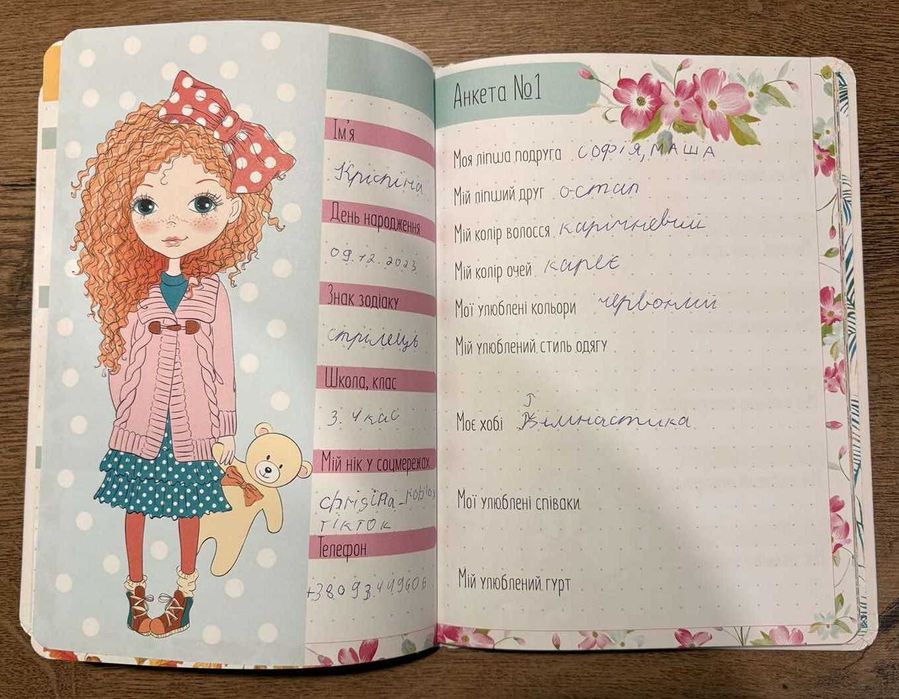 Ім'я
Крістіна
День народження
09.12.2023
Знак зодіаку
стрілець
Школа, клас
3. 4 клас
Мій нік у соцмережах
ТІКТОК
Телефон
Анкета №1
Моя ліпша подруга СОФІЯ, МАША
Мій ліпший друг Остап
Мій колір волосся карічневий
Мій колір очей кареє
Мої улюблені кольори червоний
Мій улюблений стиль одягу
Моє хобі Гімнастика
Мої улюблені співаки
Мій улюблений гурт